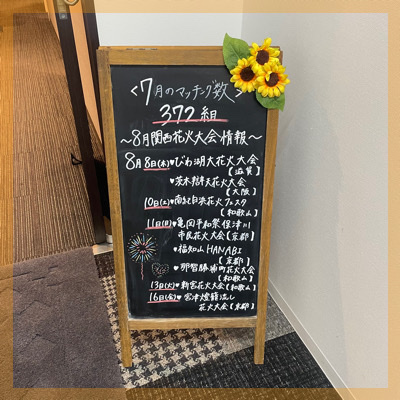 ＜7月のマッチング数＞
372組
〜8月関西花火大会情報〜
8月8日(木)♥びわ湖大花火大会
【滋賀】
♥茨木辯天花火大会
【大阪】
10日(土)♥南きの白浜花火フェスタ
【和歌山】
11日(日)♥亀岡平和祭保津川
市民花火大会【京都】
♥福知山HANABI
【京都】
♥那智勝浦町花火大会
【和歌山】
13日(火)♥新宮花火大会【和歌山】
16日(金)♥宮津燈籠流し
花火大会【京都】